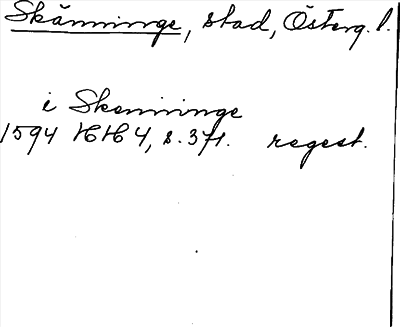 Skänninge, stad, Österg. l.
i Skeninninge
1594 HH 4, s. 371. regest.